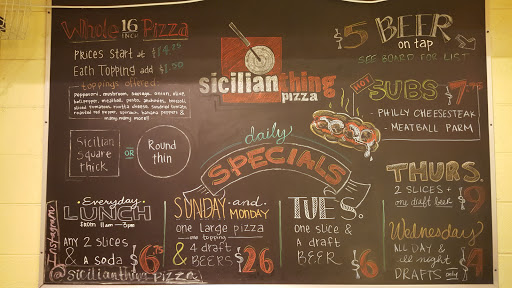 Whole 16 INCH Pizza
PRICES START at
Each Topping add $1.50
toppings offered
Pepperoni, mushroom, sausage, onion, olive,
bell pepper, meatball, pesto,
sliced tomatoes, ricotta cheese, sundried tomato,
roasted red pepper, spinach, banana peppers &
many many more!!
Sicilian
Square
thick
OR
Round
thin
sicilianthing
pizza
$5 BEER
on tap
SEE BOARD FOR LIST
HOT
SUBS $7
- PHILLY CHEESESTEAK
- MEATBALL PARM
daily
SPECIALS
Everyday
LUNCH
FROM 11am - 3pm
ANY 2 slices
& a soda $6.75
SUNDAY and
MONDAY
one large pizza
one topping
& 4 draft
BEERS $26
TUES.
one slice &
a draft
BEER $6
THURS.
2 SLICES +
one draft beer $9
Wednesday
ALL DAY &
all night
DRAFTS only $4
Instagram
@sicilianthingpizza